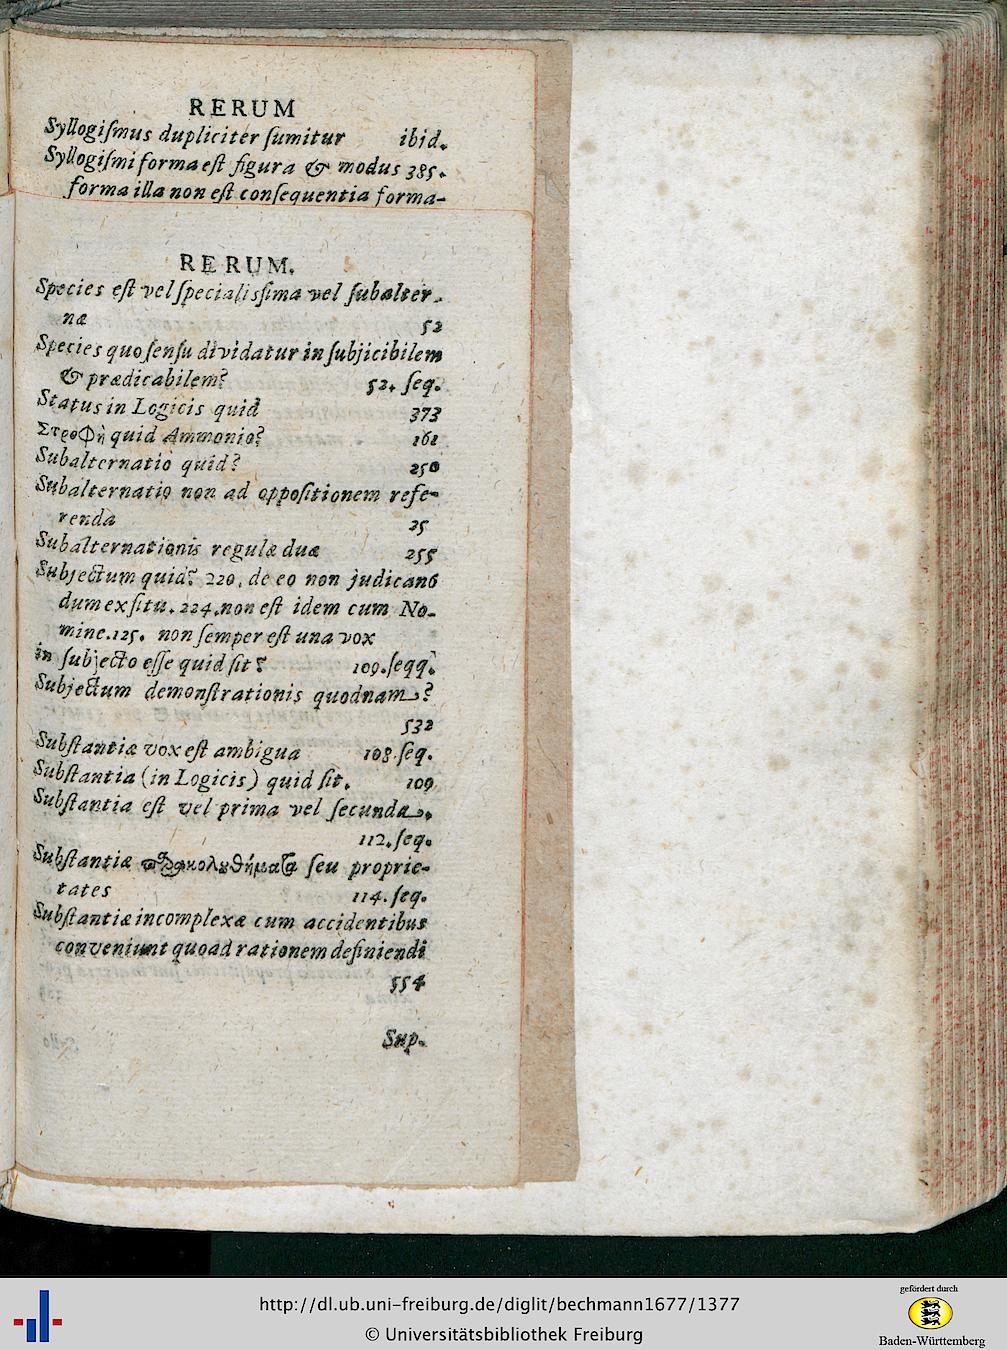 RERUM
Syllogiſmus dupliciter ſumitur ibid.
Syllogiſmi forma eſt figura & modus 385.
forma illa non eſt conſequentia forma-
RERUM.
Species eſt vel ſpecialisſima vel ſubalter-
næ 52
Species quo ſenſu dividatur in ſubjicibilem
& prædicabilem? 52. ſeq.
Status in Logicis quid 373
Στροφὴ quid Ammonio? 161
Subalternatio quid? 250
Subalternatio non ad oppoſitionem refe-
renda 25
Subalternationis regulæ duæ 255
Subjectum quid? 220. de eo non judican-
dum ex ſitu. 224. non eſt idem cum No-
mine. 125. non ſemper eſt una vox
in ſubjecto eſſe quid ſit? 109. ſeqq.
Subjectum demonſtrationis quodnam?
532
Subſtantiæ vox eſt ambigua 108. ſeq.
Subſtantia (in Logicis) quid ſit. 109
Subſtantia eſt vel prima vel ſecunda.
112. ſeq.
Subſtantiæ παρακολουθήματα ſeu proprie-
tates 114. ſeq.
Subſtantiæ incomplexæ cum accidentibus
conveniunt quoad rationem definiendi
554
Sup-
http://dl.ub.uni-freiburg.de/diglit/bechmann1677/1377
© Universitätsbibliothek Freiburg
gefördert durch
Baden-Württemberg